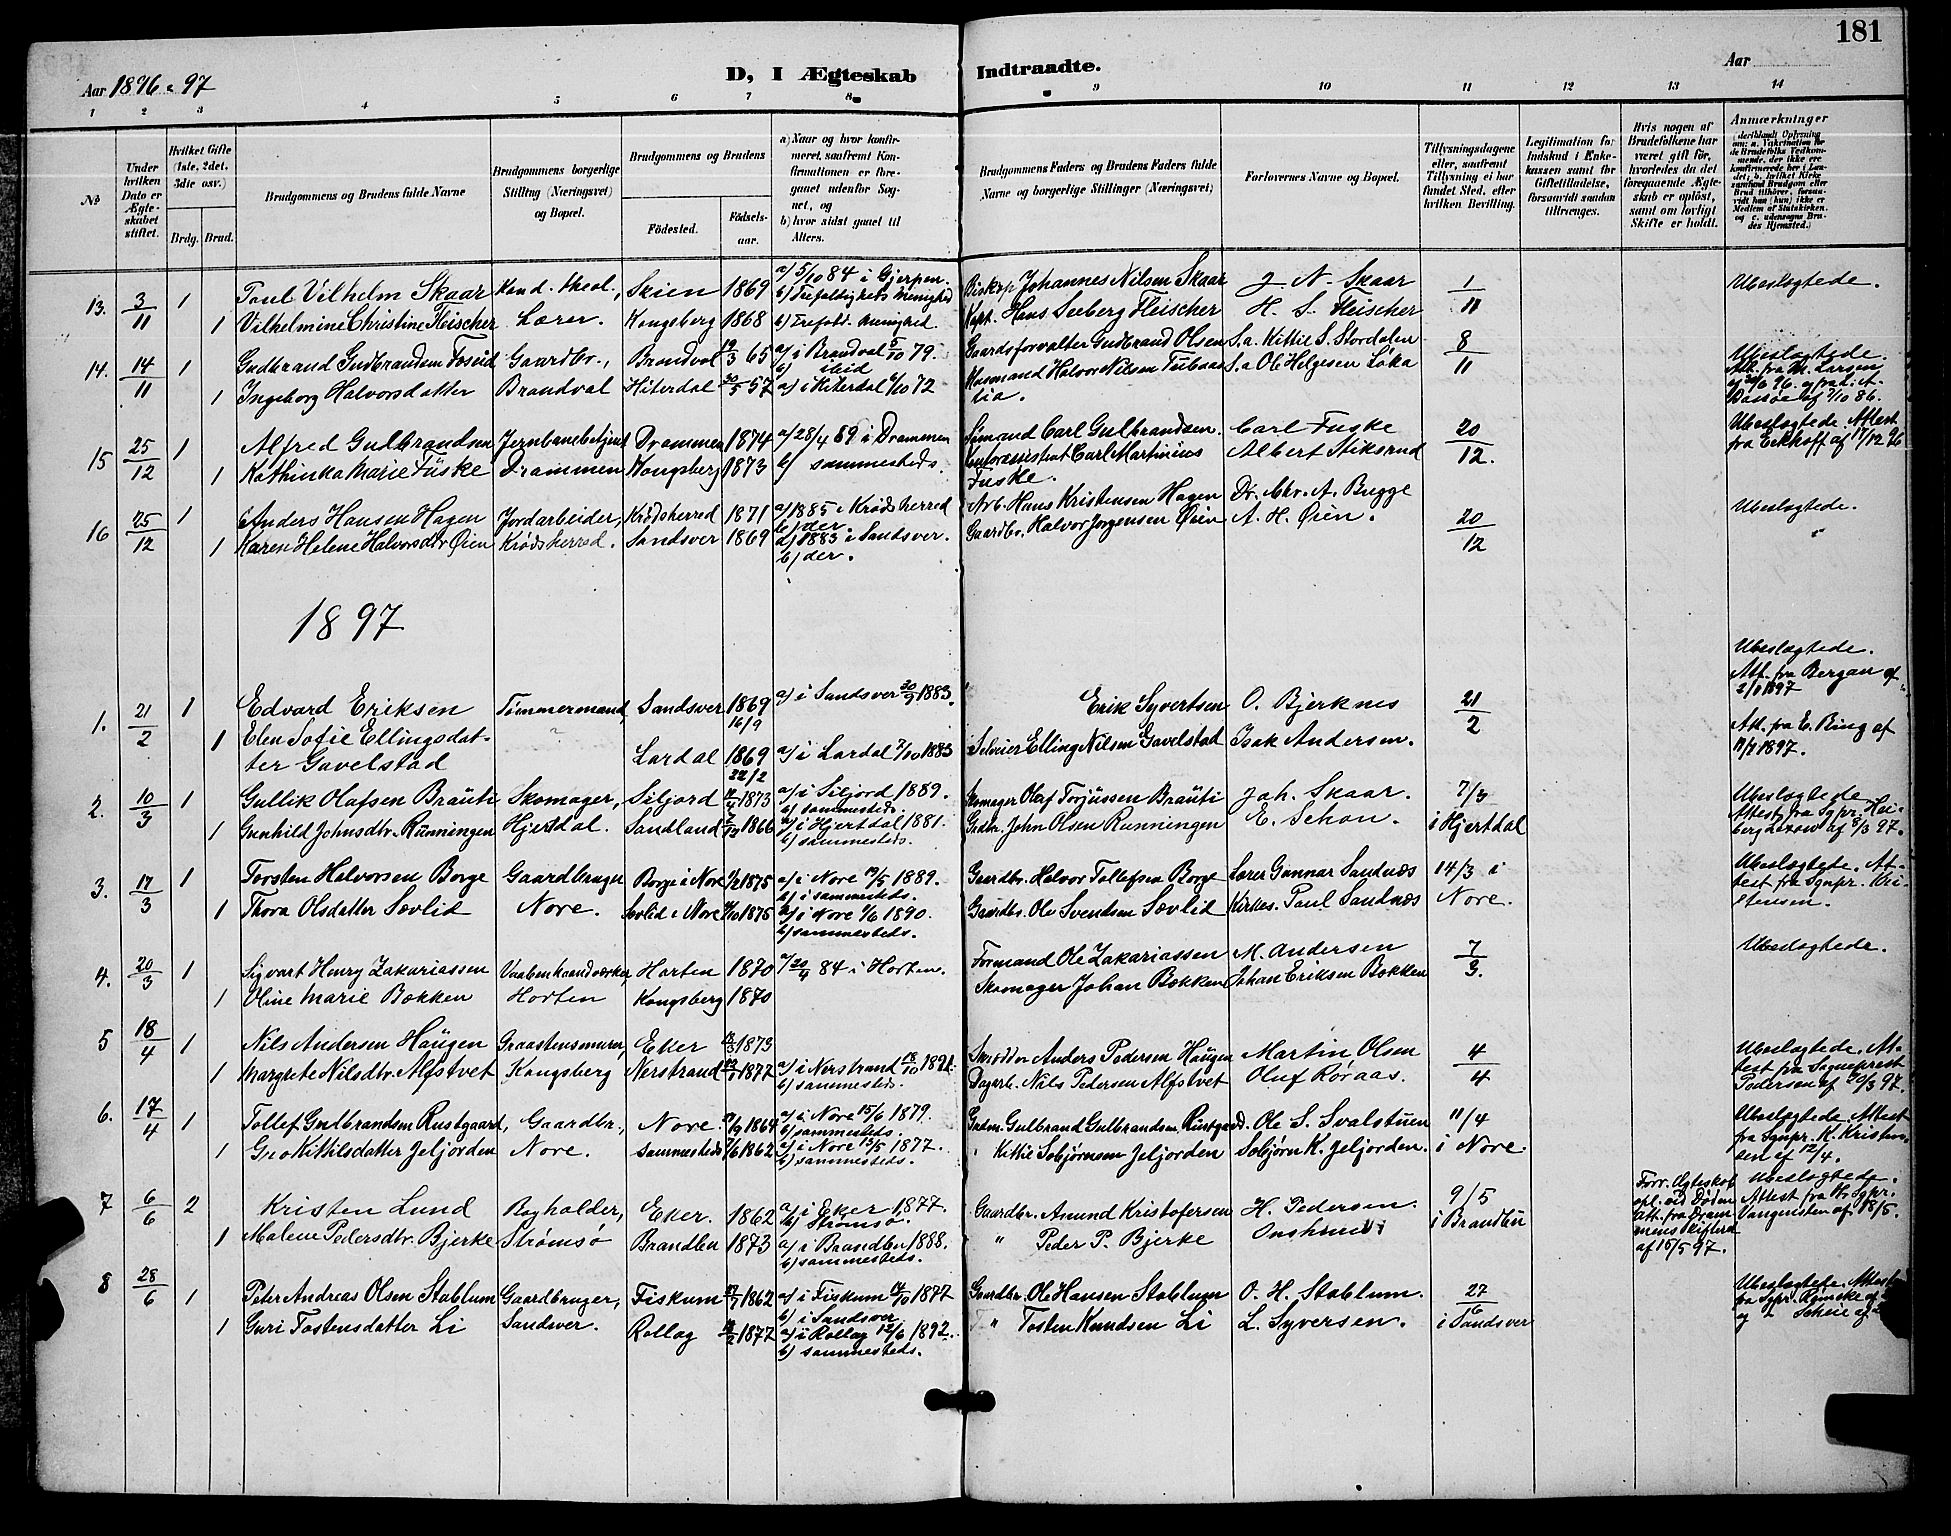 181
D, I Ægteskab Indtraadte.
Aar 1896 & 97
Aar
1 2 3 4 5 6 7 8 9 10 11 12 13 14
No
Under hvilken Dato er Ægteskabet stiftet.
Hvilket Gifte (1ste, 2det, 3die osv.)
Brdg. Brud.
Brudgommens og Brudens fulde Navne
Brudgommens borgerlige Stilling (Næringsvei) og Bopæl.
Brudgommens og Brudens
Fødested. Fødselsaar.
a) Naar og hvor konfirmeret, saafremt Konfirmationen er foregaaet udenfor Sognet, og
b) hvor sidst gaaet til Alters.
Brudgommens Faders og Brudens Faders fulde Navne og borgerlige Stillinger (Næringsvei)
Forlovernes Navne og Bopæl.
Tillysningsdagene eller, saafremt Tillysning ei har fundet Sted, efter hvilken Bevilling.
Legitimation for Indskud i Enkekassen samt for Giftetilladelse, forsaavidt saadan tiltrænges.
Hvis nogen af Brudefolkene har været gift før, hvorledes da det foregaaende Ægteskab er opløst, samt om lovligt Skifte er holdt.
Anmærkninger
13. 3/11 1 Poul Vilhelm Skaar Kand. theol., Skien 1869 a) 5/10 84 i Gjerpen. b) Trefoldigheds Menighed Biskop Johannes Nilsen Skaar J. N. Skaar 1/11 Ubeslægtede.
1 Vilhelmine Christine Fleischer Lærer. Kongsberg 1868 b) Trefold. menighed. Kapt. Hans Seeberg Fleischer H. S. Fleischer
14. 14/11 1 Gudbrand Gudbrandsen Foseid Gaardbr., Brandval 19/3 65 a) i Brandval 5/10 79. b) ibid Gaardsforvalter Gudbrand Olsen S.a. Kittil S. Stordalen 8/11 Ubeslægtede.
1 Ingeborg Halvorsdatter Brandval Hiterdal 30/5 57 a) i Hiterdal 6/10 72 Husmand Halvor Nilsen Tubaas S.a Ole Helgesen Løka
lia.
15 25/12 1 Alfred Gulbrandsen Jernbanebetjent Drammen 1874 a) 28/4 89 i Drammen Sømand Carl Gulbrandsen. Carl Fuske 20/12. Ubeslægtede. Attest fra Eckhoff af 17/12 96
1 Kathinka Marie Füske Drammen Kongsberg 1873 b) sammesteds. Carl Martinius Fuske. Albert Stiksrud
16 25/12 1 Anders Hansen Hagen Jordarbeider, Krødsherred 1871 a) 1885 i Krødsherred b) der. Arb. Hans Kristensen Hagen Dr. Chr. A. Bugge 20/12 Ubeslægtede.
1 Karen Helene Halvorsdtr Øien Krødsherred. Sandsver 1869 a) 1883 i Sandsver. b) der. Gaardbr. Halvor Jørgensen Øien A. H. Øien.
1897
1. 21/2 1 Edvard Eriksen Tømmermand, Sandsver 1869 16/9 a) i Sandsver 30/9 1883. Erik Syvertsen O. Bjerknes 21/2 Ubeslægtede. Att. fra Bergan af 2/1 1897
1 Elen Sofie Ellingsdatter Gavelstad Lardal 1869 22/2 a) i Lardal 7/10 1883 Selveier Elling Nilsen Gavelstad Isak Andersen. Att. fra E. Bing af 11/1 1897.
2. 10/3 1 Gullik Olafsen Bräuti Skomager, Siljord 1873 a) i Siljord 1889. b) sammesteds. Skomager Olaf Torjüssen Bräuti Joh. Skaar. 7/3 Ubeslægtede
1 Gunhild Johnsdtr. Rünningen Hjertdal. Sandland 1866 a) i Hjertdal 1881. b) sammesteds. Grdbr. John Olsen Runningen E. Schøn. i Hjertdal Attest fra Sgpr. Heiberg Lexow af 8/3 97.
3. 17/3 1 Torsten Halvorsen Borge Gaardbruger Borge i Nore 1/2 1875 a) i Nore 19/5 1889. b) i sammesteds. Gaardbr. Halvor Tollefsen Borge Lærer Gunnar Sandnæs 14/3 i Ubeslægtede. Attest fra Sgnpr. Kristensen.
1 Thora Olsdatter Sævlid Nore. Sævlid i Nore 1875 a) i Nore 1/6 1890. b) sammesteds. Gaardbr. Ole Svendsen Sævlid Kirkes. Paul Sandnæs Nore.
4. 20/3 1 Sigvart Henry Zakariassen Vaabenhaandverker Horten 1870 a) 20/4 84 i Horten. Formand Ole Zakariassen M. Andersen 7/3. Ubeslægtede.
1 Oline Marie Bækken Horten Kongsberg 1870 Skomager Johan Bækken Johan Eriksen Bækken
5 18/4 1 Nils Andersen Haügen Graastensmurer, Eker 1873 Skrædder Anders Pedersen Haügen Martin Olsen 4/4 Ubeslægtede. Attest fra Sogneprest Pedersen af 20/3 97.
1 Margrete Nilsdtr. Alfstvet Kongsberg Nerstrand 1877 a) i Nerstrand 18/10 1891. b) sammesteds. Dagarb. Nils Pedersen Alfstvet Oluf Røraas.
6. 17/4 1 Tollef Gulbrandsen Rustgaard, Gaardbr., Nore 1864 a) i Nore 15/6 1879. b) sammesteds. Grdm. Gulbrand Gulbrandsen Rustgaard. Ole S. Svalstüen 11/4 Ubeslægtede. Attest fra Sgnpr. K. Kristensen af 12/4.
1 Gro Kittilsdatter Jeljorden Nore. sammesteds 1862 a) i Nore 13/5 1877. b) sammesteds. " Kittil Sebjørnsen Jeljorden Sebjørn K. Jeljorden. i Nore.
7 6/6 2 Kristen Lund Bogholder, Eker. 1862 a) i Eker 1877. b) Strømsø. Gaardbr. Amund Kristofersen H. Pedersen 9/5 Forr. Ægteskab opl. ved Døden att. fra Drammens Skifteret af 15/5 97. Ubeslægtede. Attest fra Sgpr. Vangensten af 18/5.
1 Malene Pedersdtr. Bjerke Strømsø Brandbu 1873 a) i Brandbu 1888. b) sammesteds. " Peder P. Bjerke Onshuus i Brandbu
8 28/6 1 Peter Andreas Olsen Stablum Gaardbruger, Fiskum 1862 a) i Fiskum 14/10 1877 b) i Sandsver Gaardbr. Ole Hansen Stablum O. H. Stablum. 27/6 Ubeslægtede. Attest fra Sgpr. Rømcke af
1 Guri Tostensdatter Li Sandsver. Rollag 1877 a) i Rollag 12/6 1892. b) sammesteds. " Tosten Knudsen Li L. Syversen. i Sandsver og Scheie af